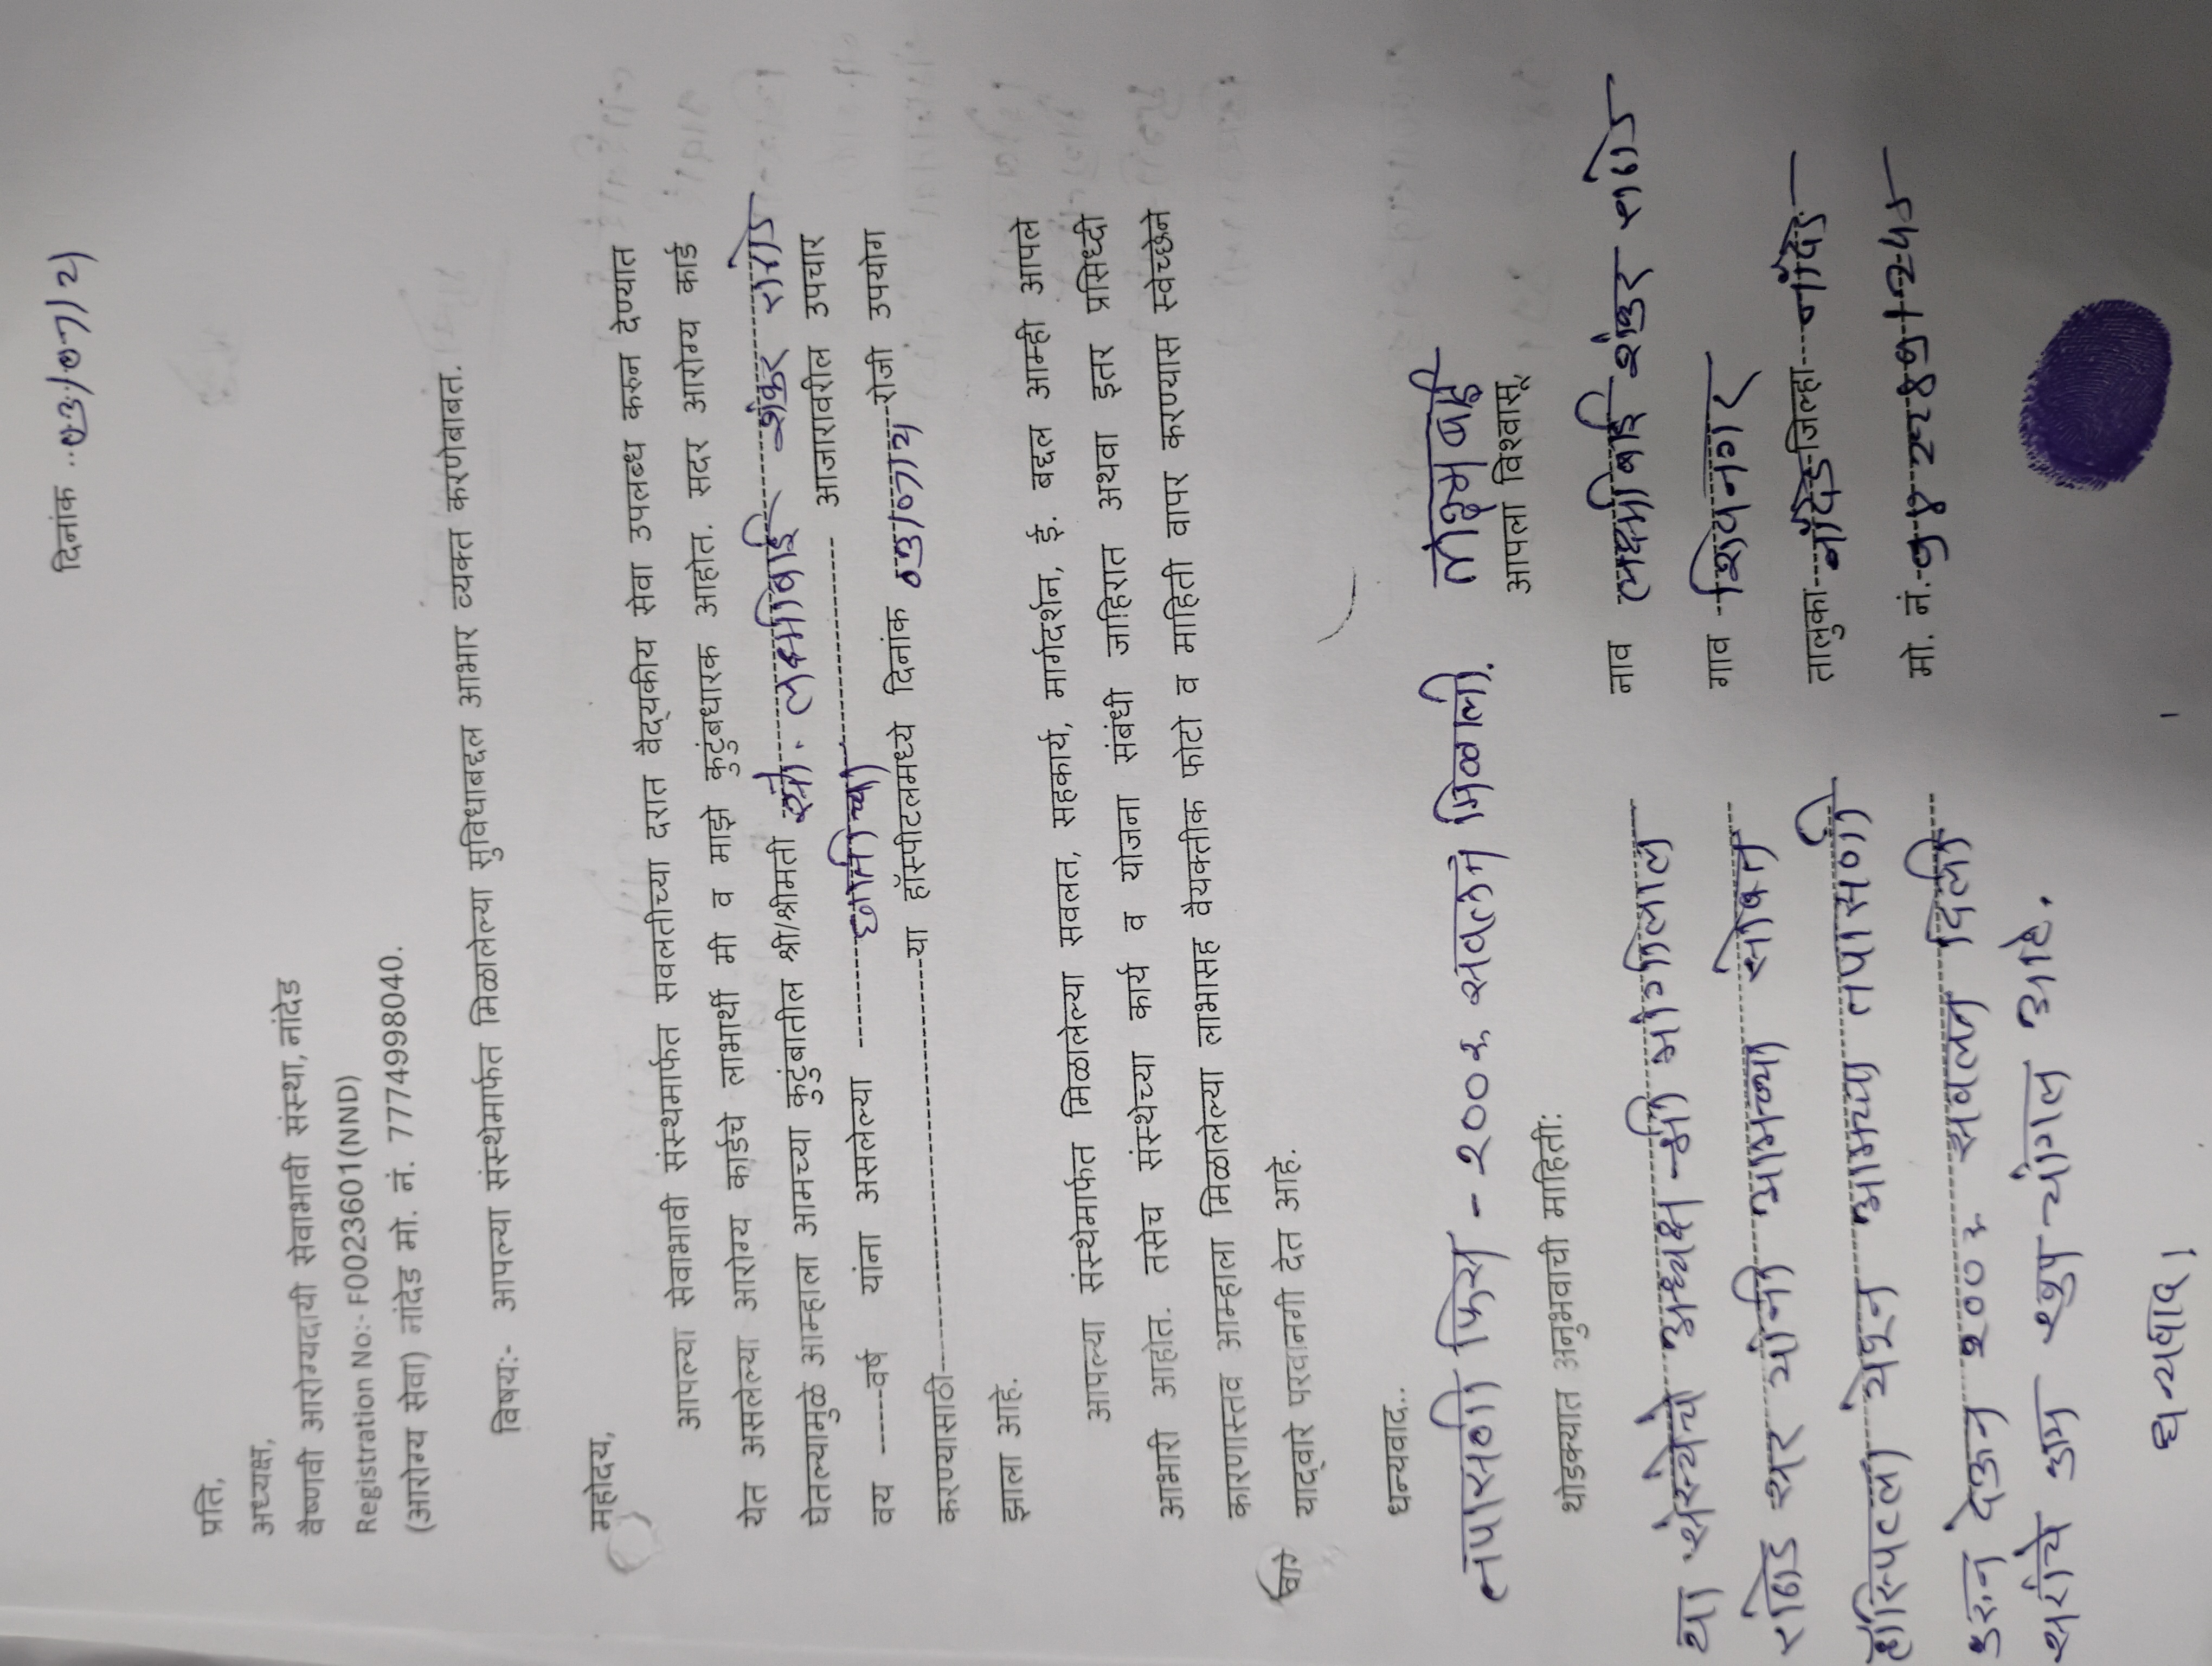 दिनांक ..०३/०७/२)
प्रति,
अध्यक्ष,
वैष्णवी आरोग्यदायी सेवाभावी संस्था, नांदेड
Registration No:- F0023601(NND)
(आरोग्य सेवा) नांदेड मो. नं. 7774998040.
विषय:- आपल्या संस्थेमार्फत मिळालेल्या सुविधाबद्दल आभार व्यक्त करणेबाबत.
महोदय,
आपल्या सेवाभावी संस्थमार्फत सवलतीच्या दरात वैद्यकीय सेवा उपलब्ध करुन देण्यात
येत असलेल्या आरोग्य कार्डचे लाभार्थी मी व माझे कुटुंबधारक आहोत. सदर आरोग्य कार्ड
घेतल्यामुळे आम्हाला आमच्या कुटुंबातील श्री/श्रीमती सौ. लक्ष्मीबाई शंकर राठोड
वय ------वर्ष यांना असलेल्या ---------- छातीच्या ---------- आजारावरील उपचार
करण्यासाठी------------------------------या हॉस्पीटलमध्ये दिनांक ०३/०७/२) रोजी उपयोग
झाला आहे.
आपल्या संस्थेमार्फत मिळालेल्या सवलत, सहकार्य, मार्गदर्शन, ई. बद्दल आम्ही आपले
आभारी आहोत. तसेच संस्थेच्या कार्य व योजना संबंधी जाहिरात अथवा इतर प्रसिध्दी
कारणास्तव आम्हाला मिळालेल्या लाभासह वैयक्तीक फोटो व माहिती वापर करण्यास स्वेच्छेने
याद्वारे परवानगी देत आहे.
धन्यवाद..
तपासणी फिस - २००रु सवलत मिळाली.
आपला विश्वासू,
नाव लक्ष्मीबाई शंकर राठोड
गाव शिवनगर
तालुका नांदेड जिल्हा नांदेड
मो. नं.
थोडक्यात अनुभवाची माहिती:
या संस्थेचे अध्यक्ष श्री मांगीलाल
राठोड सर यांनी आमच्या सोबत
हॉस्पिटला येऊन आमच्या तपासणी
करुन देऊन २००रु सवलत दिली
सरांचे काम खुप चांगल आहे.
धन्यवाद।